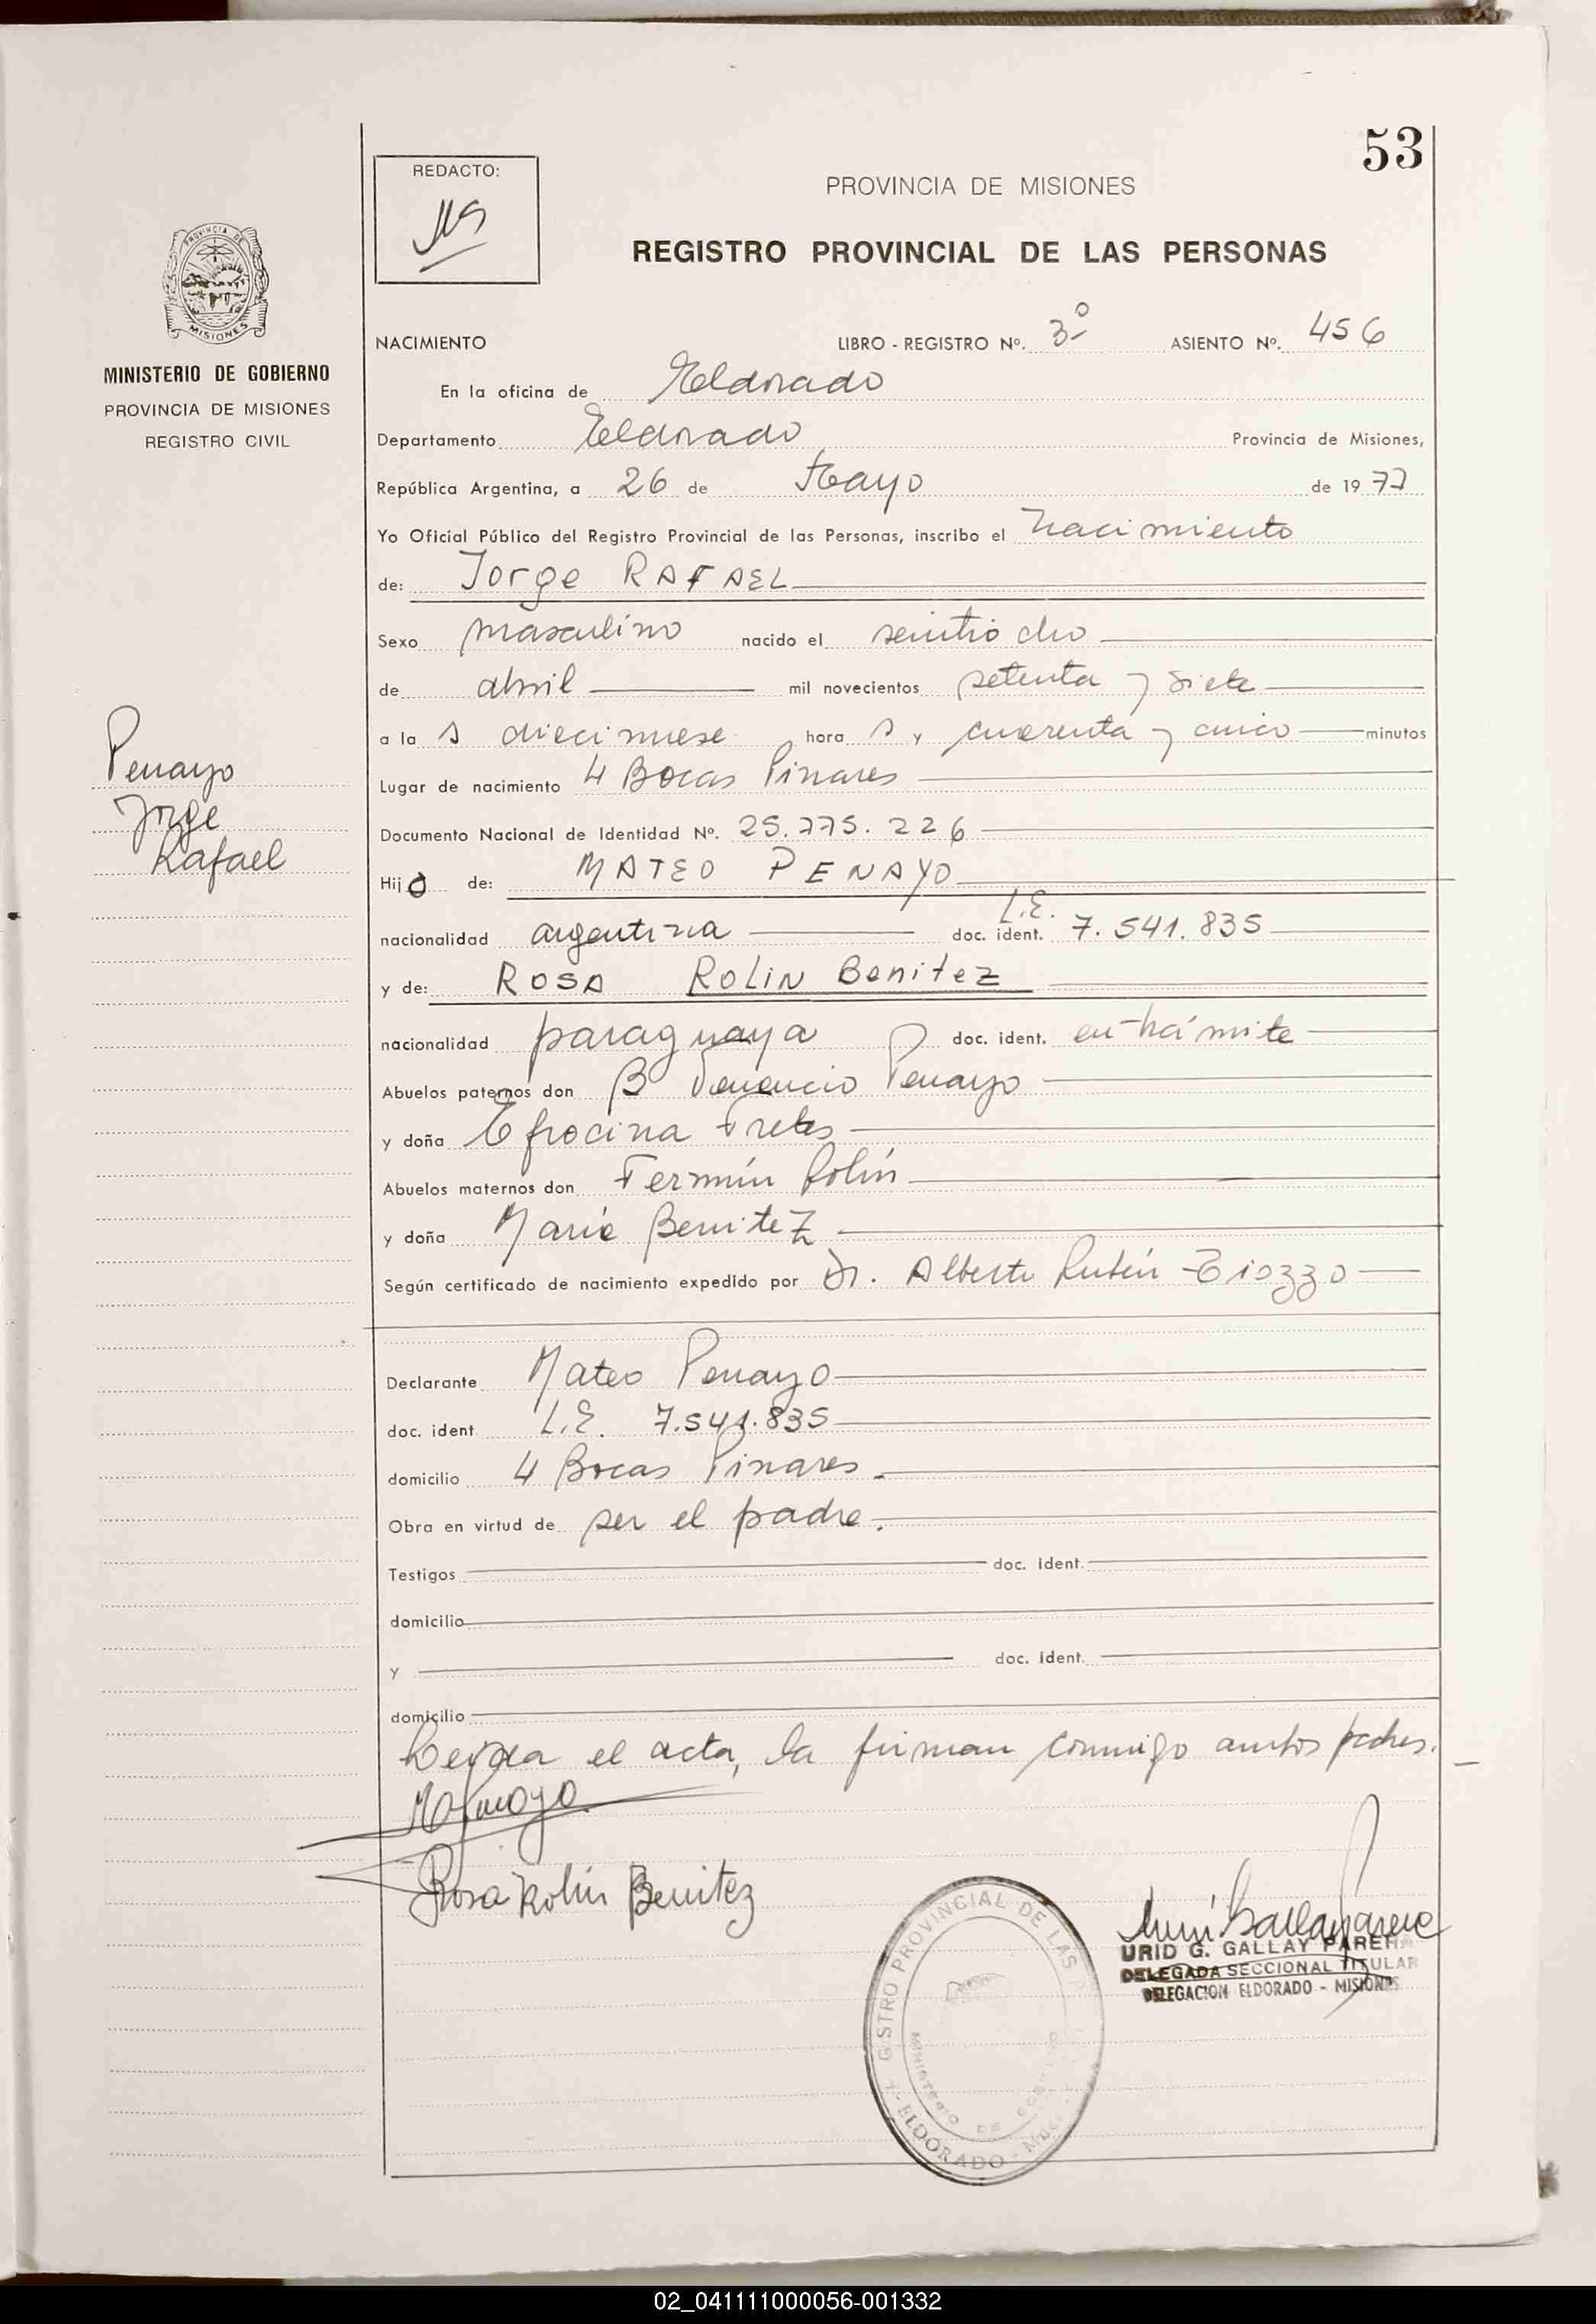 53
REDACTO:
PROVINCIA DE MISIONES
REGISTRO PROVINCIAL DE LAS PERSONAS
PROVINCIA DE
MISIONES
MINISTERIO DE GOBIERNO
PROVINCIA DE MISIONES
REGISTRO CIVIL
NACIMIENTO LIBRO - REGISTRO Nº. 3º ASIENTO Nº. 456
En la oficina de Eldorado
Departamento Eldorado Provincia de Misiones,
República Argentina, a 26 de Mayo de 1977
Yo Oficial Público del Registro Provincial de las Personas, inscribo el nacimiento
de: Jorge RAFAEL
Sexo masculino nacido el veintiocho
de abril mil novecientos setenta y siete
a la s diecinueve hora s y cuarenta y cinco minutos
Lugar de nacimiento 4 Bocas Pinares
Documento Nacional de Identidad Nº. 25.775.226
Penayo
Jorge
Rafael
Hijo de: MATEO PENAYO
nacionalidad argentina doc. ident. L.E. 7.541.835
y de: ROSA ROLIN Benitez
nacionalidad paraguaya doc. ident. en trámite
Abuelos paternos don B Venancio Penayo
y doña Efrocina Fretes
Abuelos maternos don Fermín Rolín
y doña María Benitez
Según certificado de nacimiento expedido por Dr. Alberto Rubén
Declarante Mateo Penayo
doc. ident L.E. 7.541.835
domicilio 4 Bocas Pinares.
Obra en virtud de ser el padre.
Testigos doc. ident.
domicilio
y doc. ident.
domicilio
Leída el acta, la firman conmigo ambos padres.
Rosa Rolín Benitez
URID G. GALLAY PAREHA
DELEGADA SECCIONAL TITULAR
DELEGACION ELDORADO - MISIONES
GISTRO PROVINCIAL DE LAS P
MINISTERIO DE GOBIERNO
ELDORADO - Mnes.
02_041111000056-001332